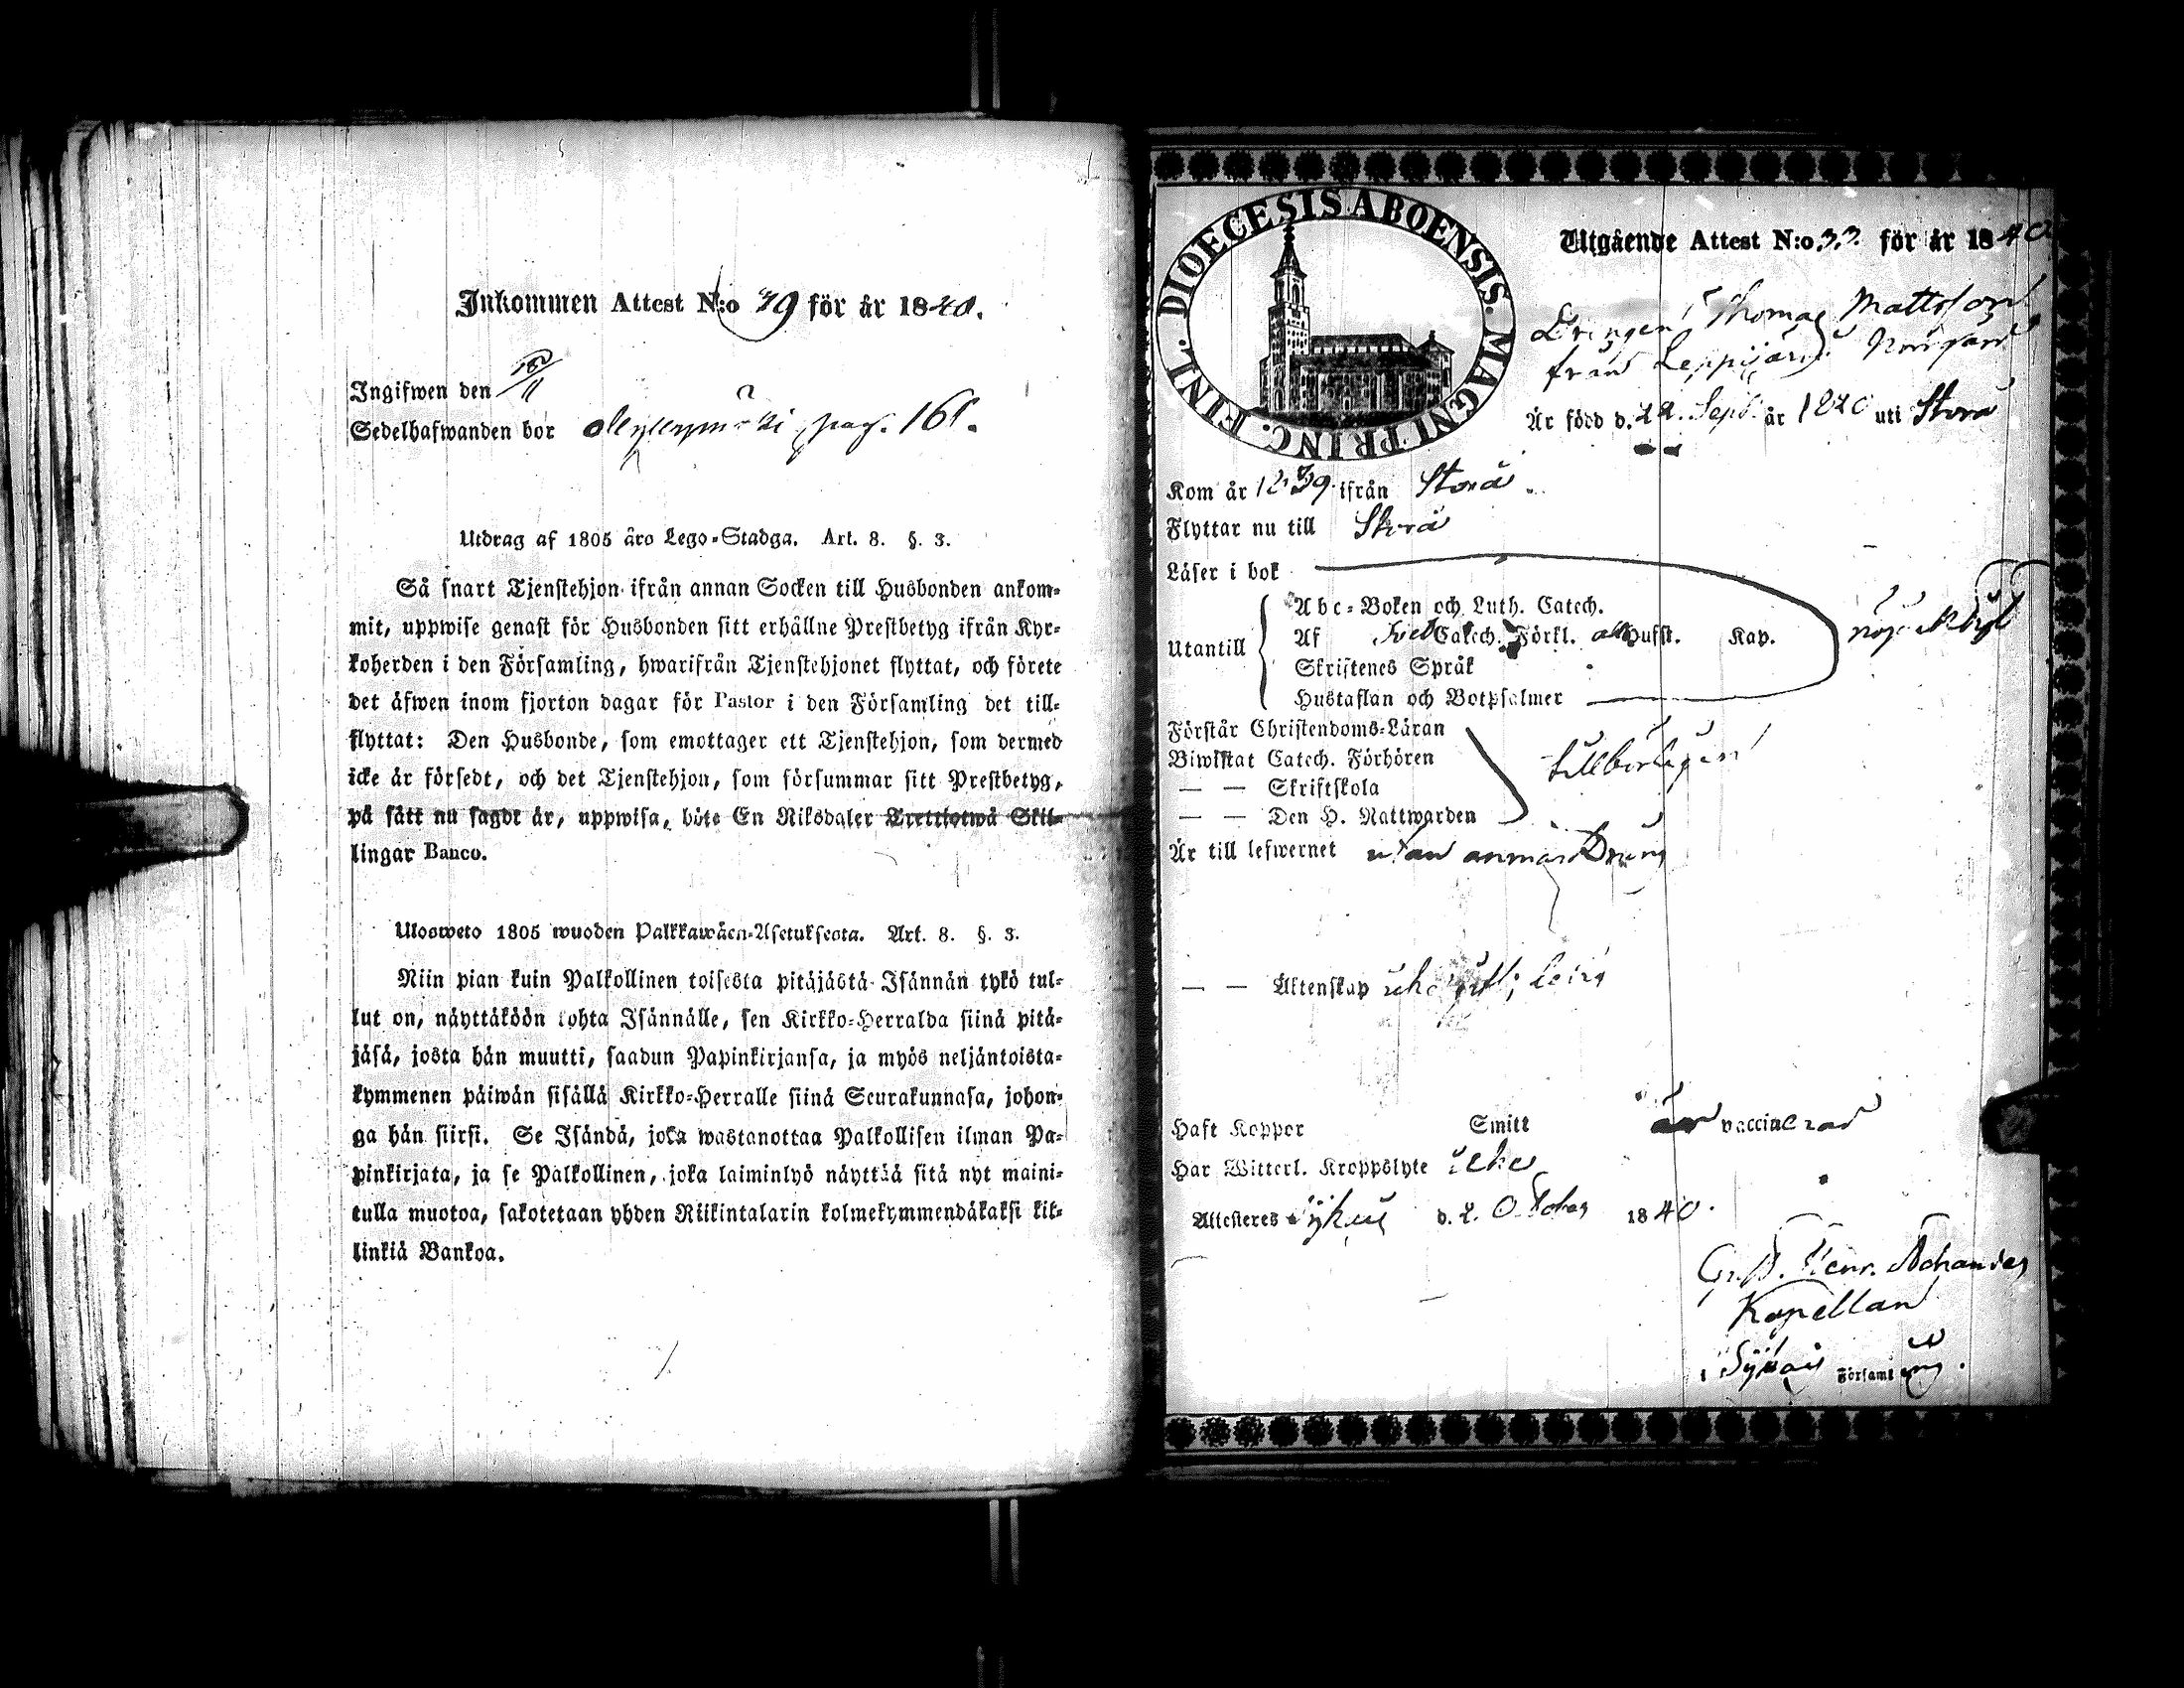 Inkommen Attest N:o 79 för år 1840.
Ingifwen den 18/11
Sedelhafwanden bor Myllymäki, pag. 161.
Utdrag af 1805 års Lego-Stadga. Art. 8. §. 3.
Så snart Tjenstehjon ifrån annan Socken till Husbonden ankom-
mit, uppwise genast för Husbonden sitt erhållne Prestbetyg ifrån Kyr-
koherden i den Församling, hwarifrån Tjenstehjonet flyttat, och förete
det äfwen inom fjorton dagar för Pastor i den Församling det till-
flyttat: Den Husbonde, som emottager ett Tjenstehjon, som dermed
icke är försedt, och det Tjenstehjon, som försummar sitt Prestbetyg,
på sätt nu sagdt är, uppwisa, böte En Riksdaler Trettiotwå Skil-
lingar Banco.
Ulosweto 1805 wuoden Palkkawäen-Asetuksesta. Art. 8. §. 3.
Niin pian kuin Palkollinen toisesta pitäjästä Isännän tykö tul-
lut on, näyttäköön kohta Isännälle, sen Kirkko-Herralda siinä pitä-
jäsä, josta hän muutti, saadun Papinkirjansa, ja myös neljäntoista-
kymmenen päiwän sisällä Kirkko-Herralle siinä Seurakunnasa, johon-
ga hän siirsi. Se Isändä, joka wastanottaa Palkollisen ilman Pa-
pinkirjata, ja se Palkollinen, joka laiminlyö näyttää sitä nyt maini-
tulla muotoa, sakotetaan yhden Riikintalarin kolmekymmendäkaksi kil-
linkiä Bankoa.
DIOECESIS ABOENSIS. MAGNI PRINC. FINL.
Utgående Attest N:o 33 för år 1840
Drängen Thomas Mattsson
från Leppijärvi
Är född d. 22. Sept. år 1820 uti Storå
Kom år 1839 ifrån Storå.
Flyttar nu till Storå
Läser i bok
Utantill
Abc-Boken och Luth. Catech.
Af Catech. Förkl. Hufst. Kap.
Skriftenes Språk
Hustaflan och Botpsalmer
nöjaktigt
Förstår Christendoms-Läran
Biwistat Catech. Förhören
— — Skriftskola
— — Den H. Nattwarden
tillbörligen
Är till lefwernet utan anmärkning
— — Äktenskap ledig
Haft Koppor Smitt är vaccinerad
Har Witterl. Kroppslyte icke
Attesteras d. 2. October 1840.
Henr.
Kapellan
i Församling.